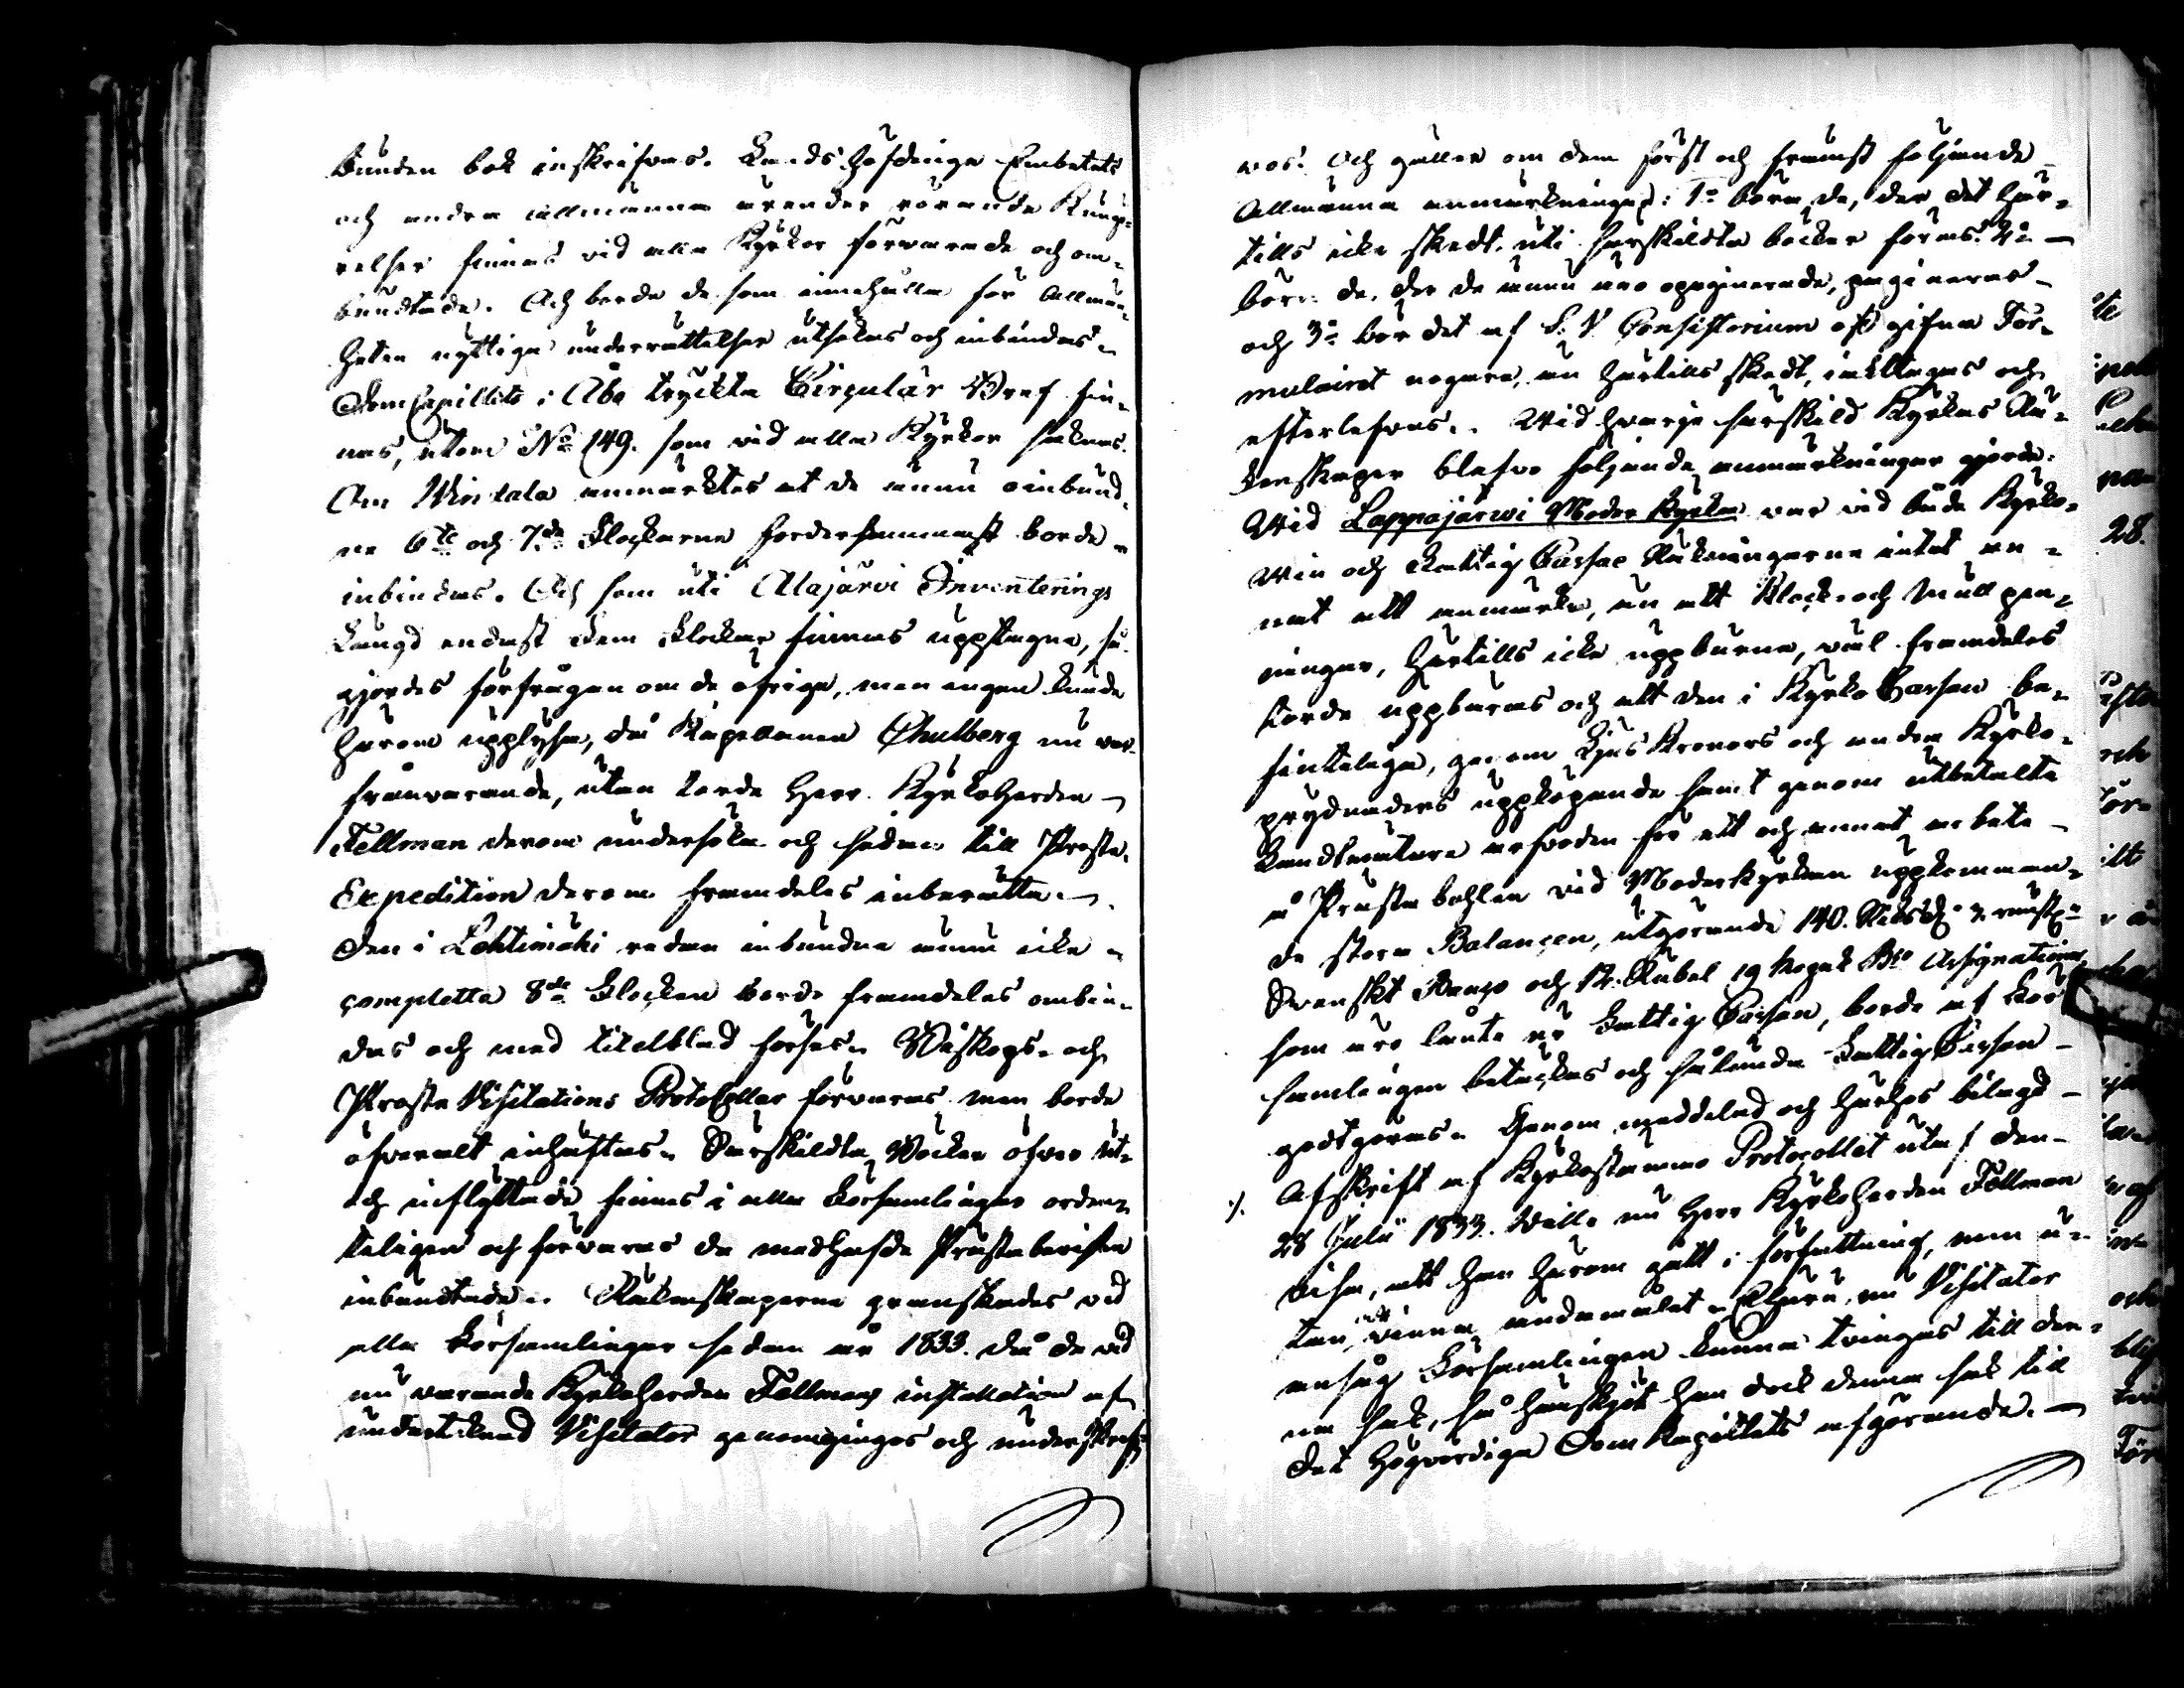 bunden bok inskrifvas. Landshöfdinge Embetets
och andra allmänna ärender rörande Kungö-
relser finnas vid alla Kyrkor förvarade och om-
bundtade. Och borde de som innehålla för allmän-
heten nyttiga underrättelser utsökas och inbindas.
DomCapittlets i Åbo tryckta Cirqulär Bref fin-
nas, utom No 149. som vid alla Kyrkor saknas.
Om Vindala anmärktes at de ännu oinbund-
na 6te och 7de Flockarne fordersammast borde
inbindas. Och som uti Alajärvi Inventerings
Längd endast dem Flockar finnas upptagne, så
gjordes förfrågan om de öfriga, men ingen kunde
härom upplysa, då Kapellanen Thulberg nu var
frånvarande, utan borde Herr Kyrkoherden
Fellman derom undersöka och sedan till Prosts
Expedition derom framdeles inberätta.
Den i Lehtimäki redan inbundna ännu icke
completta 8de Flocken borde framdeles ombin-
das och med titelblad förses. Biskops- och
Prosta Visitations Protocoller förvaras men borde
öfveralt inhäftas. Särskildta Böcker öfver ut-
och inflyttade finnas i alla Församlingar orden-
teligen och förvaras de medhafde Prästebevisen
inbundtade. Räkenskaperna granskades vid
alla Församlingar sedan år 1833. då de vid
nu varande Kyrkoherden Fellmans installation af
undertecknad Visitator genomginges och underskref-
vos. Och gäller om dem först och främst följande
Allmänna anmärkningar: 1o böra de, der det här-
tills icke skedt, uti särskildta böcker föras. 2o
böra de, der de ännu äro opaginerade, pagineras
och 3o bör det af S. V. Consistorium oss gifna For-
mulairet nogare, än härtills skedt, iakttagas och
efterlefvas. Vid hvarje särskild Kyrkas Rä-
kenskaper blefvo följande anmärkningar gjorde.
Vid Lappajärwi Moder Kyrka var vid både Kyrko-
Vin och Fattig Cassae Räkningarne intet an-
nat att anmärka, än att Klock- och Mull pen-
ningar, härtills icke uppburne, väl framdeles
torde uppbäras och att den i Kyrko Cassan be-
finteliga, genom Ljus Kronors och andra Kyrko-
prydnaders uppköpande samt genom utbetalte
Landtmätare arfvoden för ett och annat arbete
å Prästa bohlen vid Moderkyrkan uppkomman-
de stora Balancen, utgörande 140. Riksd.
Svenskt Banco och 12. Rubel 19 kopek Bco Assignationer,
som äro lånte ur Fattig Cassan, borde af För-
samlingen betäckas och sålunda Fattig Cassan
godtgöras. Genom meddelad och härhos bilagd
./. Afskrift af Kyrkostämmo Protocollet utaf den
28 Julii 1833. Ville nu Herr Kyrkoherden Fellman
visa, att han härom gått i författning, men u-
tan att vinna ändamålet. Ehuru nu Visitator
ansåg Församlingen kunna tvingas till den-
na sak, så hänsköt han dock denna sak till
det Högvördiga DomKapittlets afgörande.
28.